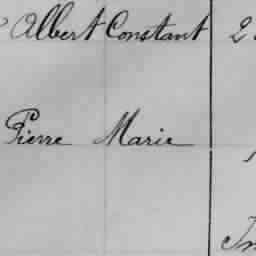 Albert Constant 2
Pierre Marie